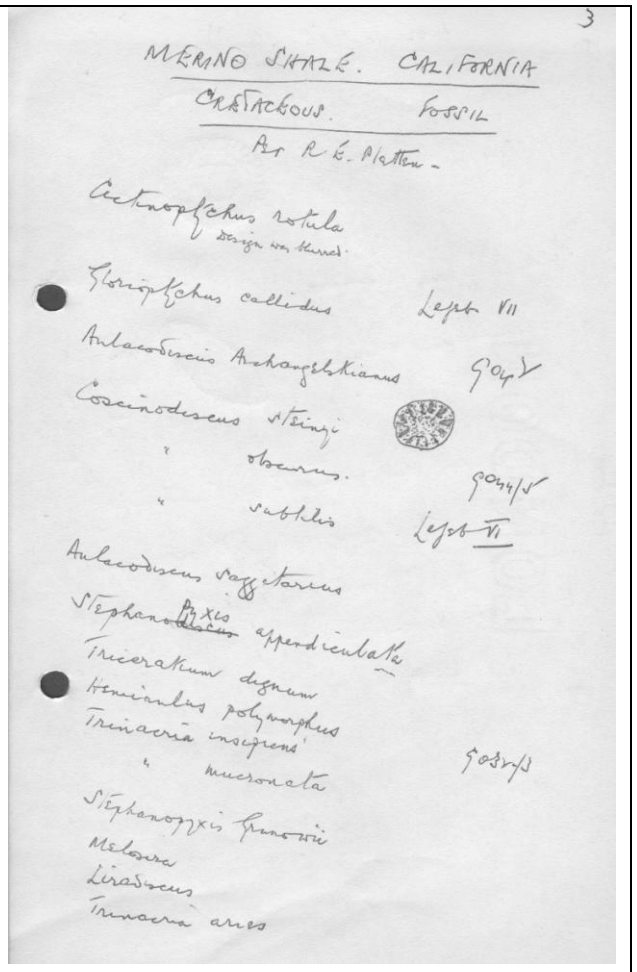 3
MERINO SHALE. CALIFORNIA
CRETACEOUS. FOSSIL
Per R E. Platten -
Actinoptychus rotula
Design was blurred.
Glorioptychus callidus Lefeb VII
Aulacodiscus Archangelskianus
Coscinodiscus steinyi
" obscurus.
" subtilis Lefeb VI
Aulacodiscus saggitarius
Pyxis
Stephanodiscus appendiculata
Triceratium dignum
Hemiaulus polymorphus
Trinacria insipiens
" mucronata
Stephanopyxis Grunowii
Melosira
Liradiscus
Trinacria aries